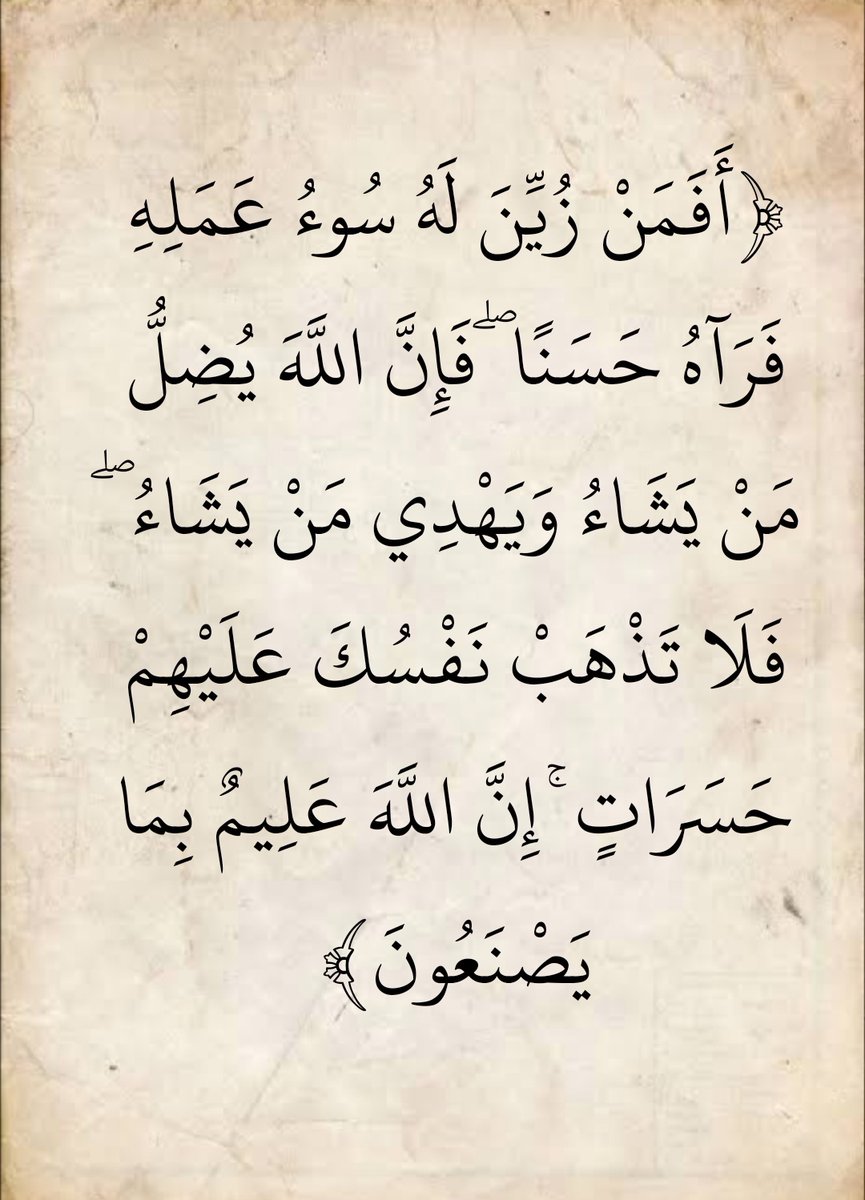 ﴿أَفَمَنْ زُيِّنَ لَهُ سُوءُ عَمَلِهِ
فَرَآهُ حَسَنًا ۖ فَإِنَّ اللَّهَ يُضِلُّ
مَنْ يَشَاءُ وَيَهْدِي مَنْ يَشَاءُ ۖ
فَلَا تَذْهَبْ نَفْسُكَ عَلَيْهِمْ
حَسَرَاتٍ ۚ إِنَّ اللَّهَ عَلِيمٌ بِمَا
يَصْنَعُونَ﴾